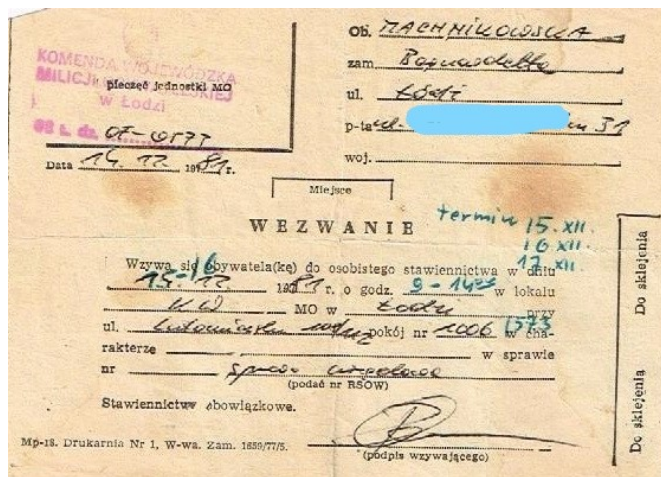 KOMENDA WOJEWÓDZKA
MILICJI OBYWATELSKIEJ
pieczęć jednostki MO
w Łodzi
l. dz. OZ-0577
Data 14.12. 1981 r.
Ob. MACHNIKOWSKA
zam.
ul. Łódź
p-ta ul. m 31
woj.
Miejsce
WEZWANIE
termin 15.XII.
16 XII.
17 XII.
Wzywa się obywatela(kę) do osobistego stawiennictwa w dniu
15-16 12 1981 r. o godz. 9-14 w lokalu
KW MO w Łodzi przy
ul. Lutomierska pokój nr 1006 (573) w cha-
rakterze w sprawie
nr sprawa urzędowa
(podać nr RSOW)
Stawiennictwo obowiązkowe.
Mp-18. Drukarnia Nr 1, W-wa. Zam. 1659/77/5.
(podpis wzywającego)
Do sklejenia
Do sklejenia